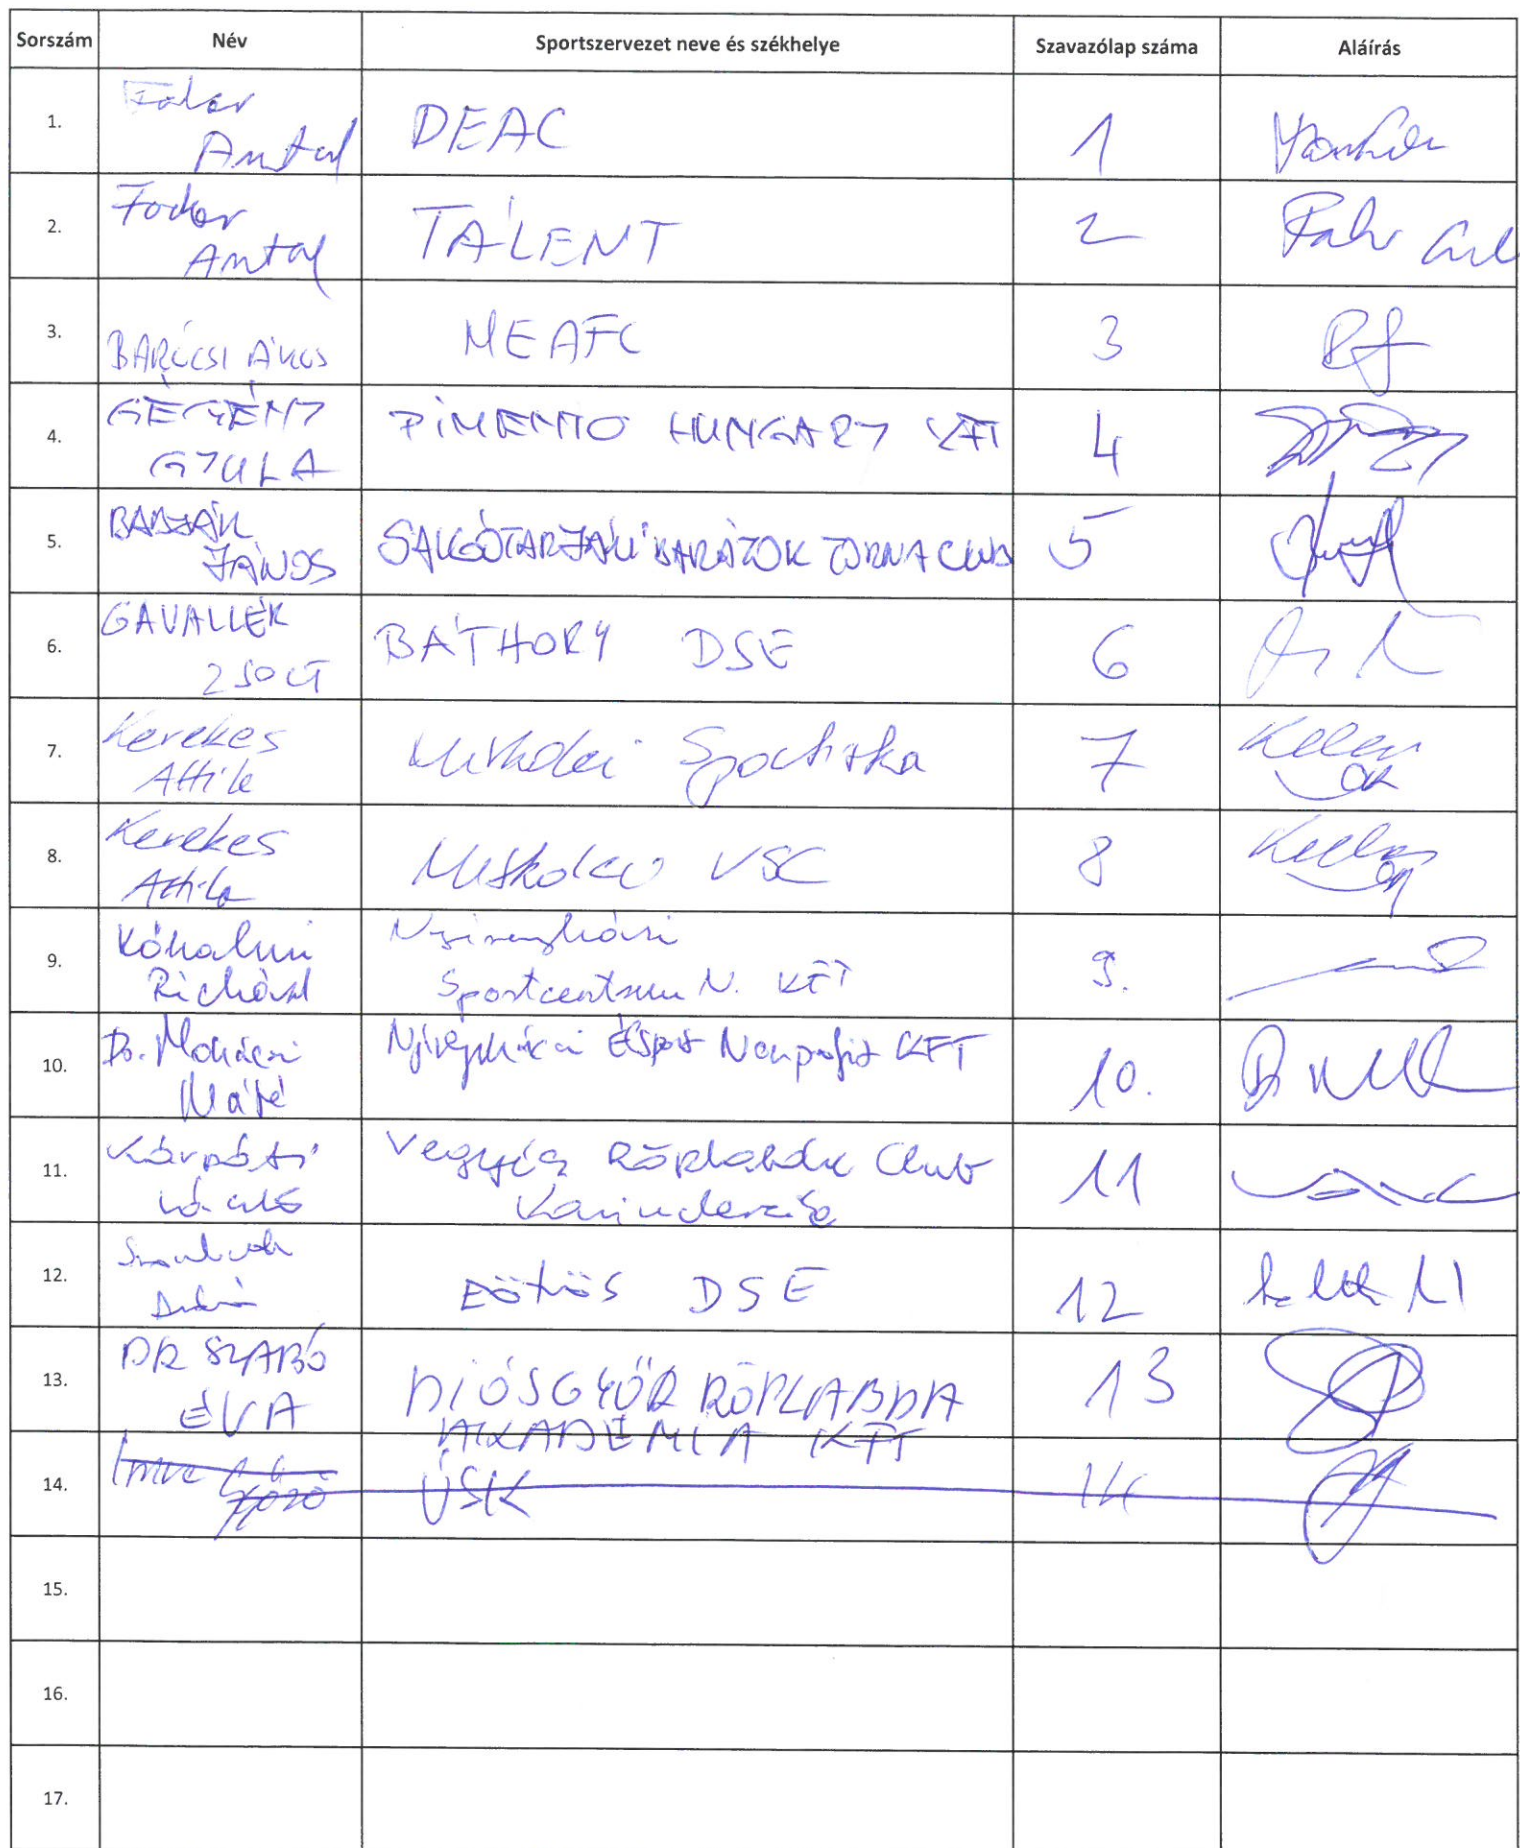 Sorszám Név Sportszervezet neve és székhelye Szavazólap száma Aláírás
1. Fodor Antal DEAC 1
2. Fodor Antal TALENT 2
3. BARÓCSI ÁKOS MEAFC 3
4. GÉGÉNY GYULA PIMENTO HUNGARY KFT 4
5. BABJÁK JÁNOS SALGÓTARJÁNI BARÁTOK TORNA CLUB 5
6. GAVALLÉR ZSOLT BÁTHORY DSE 6
7. Kerekes Attila Miskolci Sportiskola 7
8. Kerekes Attila Miskolci VSC 8
9. Kőhalmi Richárd Nyíregyházi
Sportcentrum N. KFT 9.
10. Dr. Mohácsi Máté Nyíregyházi Élsport Nonprofit KFT 10.
11. Kárpáti Vegyész Röplabda Club
Kazincbarcika 11
12. Eötvös DSE 12
13. DR SZABÓ ÉVA DIÓSGYŐR RÖPLABDA
AKADÉMIA KFT 13
14. Imre Győző ÚSK 14
15.
16.
17.